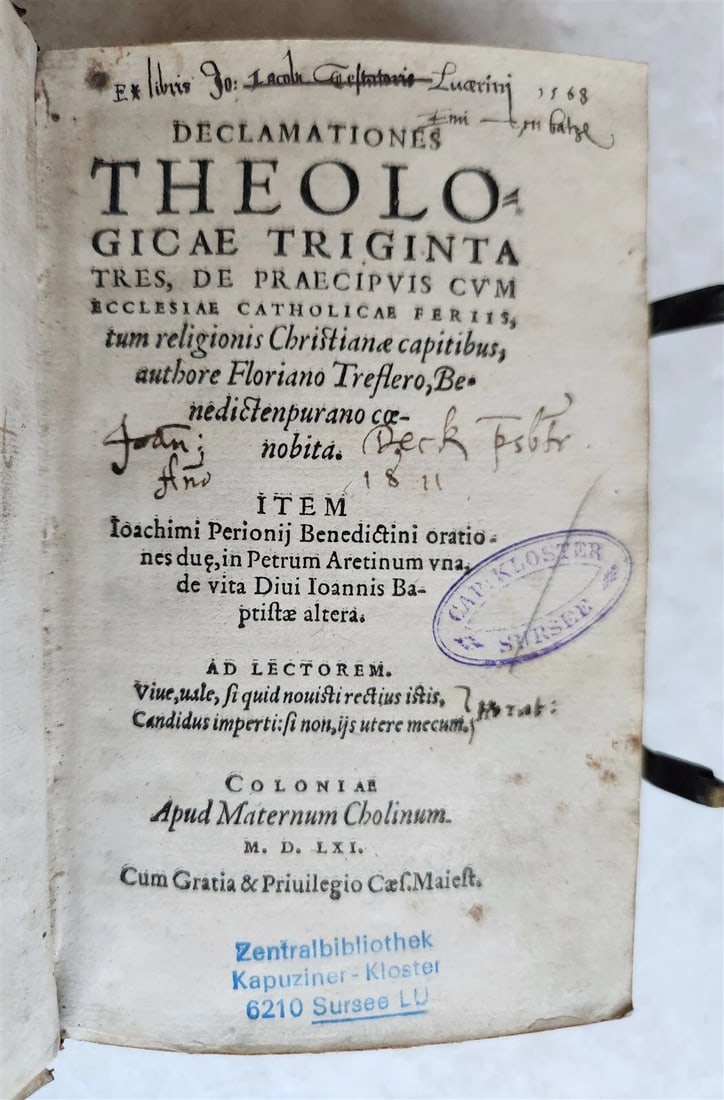 Ex libris Jo: Lucerini 1568
DECLAMATIONES
THEOLO-
GICAE TRIGINTA
TRES, DE PRAECIPVIS CVM
ECCLESIAE CATHOLICAE FERIIS,
tum religionis Christianæ capitibus,
authore Floriano Treflero, Be-
nedictenpurano cœ-
nobita.
Joan̄:
Deck
Año 1811
ITEM
Ioachimi Perionij Benedictini oratio-
nes duę, in Petrum Aretinum vna,
de vita Diui Ioannis Ba-
ptistæ altera.
CAP: KLOSTER
SURSEE
AD LECTOREM.
Viue, uale, si quid nouisti rectius istis,
Candidus imperti: si non, ijs utere mecum.
Horat:
COLONIAE
Apud Maternum Cholinum.
M. D. LXI.
Cum Gratia & Priuilegio Cæs. Maiest.
Zentralbibliothek
Kapuziner-Kloster
6210 Sursee LU